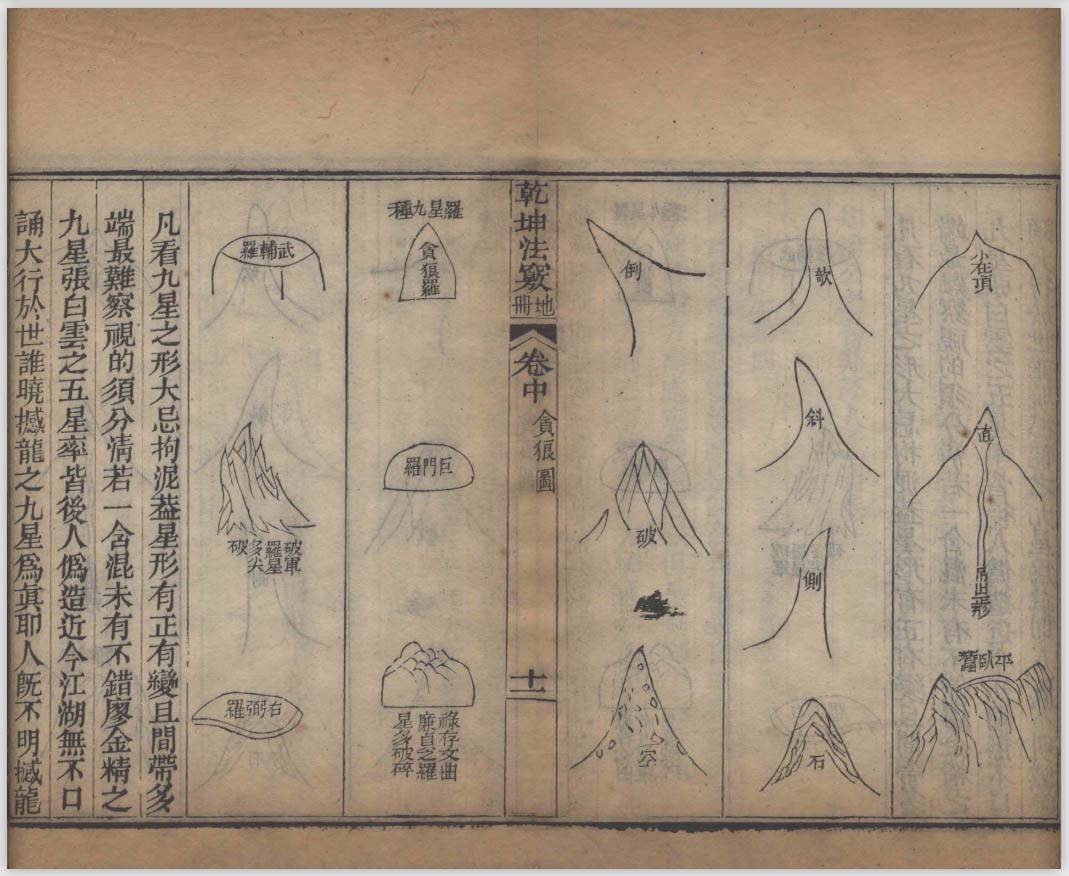 小在頂
直
吊出正形
平臥蠶
欹
斜
側
石
倒
破
空
乾坤法竅
地冊
卷中
貪狼圖
十一
羅星九種
貪狼羅
巨門羅
祿存文曲
廉貞之羅
星多破碎
武輔羅
破軍
羅星
多尖
破
右弼羅
凡看九星之形大忌拘泥葢星形有正有變且間帶多
端最難察視的須分清若一含混未有不錯廖金精之
九星張白雲之五星率皆後人僞造近今江湖無不口
誦大行於世誰曉撼龍之九星爲眞耶人旣不明撼龍